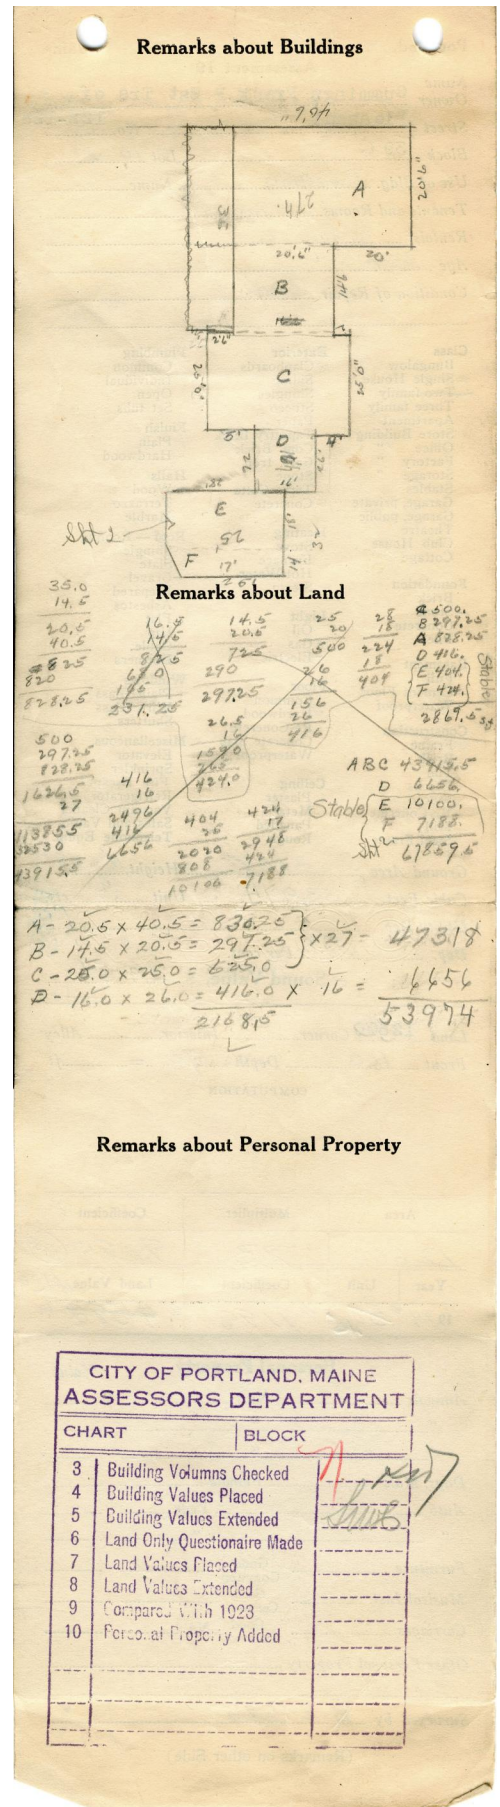 Remarks about Buildings
40'6"
A
20'6"
27 H.
20'6"
20'
B
14'6
2'6"
C
25'0"
25'0"
5'
D
4'
16'
26'
E
18'
25'
17'
F
14'
Sht 2
Remarks about Land
35.0
14.5
20.5
40.5
828.25
16.5
14.5
825
660
165
231.25
14.5
20.5
725
290
297.25
25
20
500
26
16
156
26
416
28
18
224
18
404
C 500.
B 297.25
A 828.25
D 416.
E 404.
F 424.
Stable
2869.5
500
297.25
828.25
1626.5
27
113855
32530
43915.5
416
16
2496
416
6656
26.5
16
1590
265
424.0
404
25
2020
808
10100
424
17
2948
424
7188
ABC 43915.5
D 6656.
Stable E 10100.
F 7188.
Sht 2 67859.5
A - 20.5 x 40.5 = 830.25
B - 14.5 x 20.5 = 297.25 x 27 - 47318
C - 25.0 x 25.0 = 625.0
D - 16.0 x 26.0 = 416.0 x 16 = 6656
2168.5 53974
Remarks about Personal Property
CITY OF PORTLAND, MAINE
ASSESSORS DEPARTMENT
CHART BLOCK
3 Building Volumns Checked
4 Building Values Placed
5 Building Values Extended
6 Land Only Questionaire Made
7 Land Values Placed
8 Land Values Extended
9 Compared With 1923
10 Personal Property Added